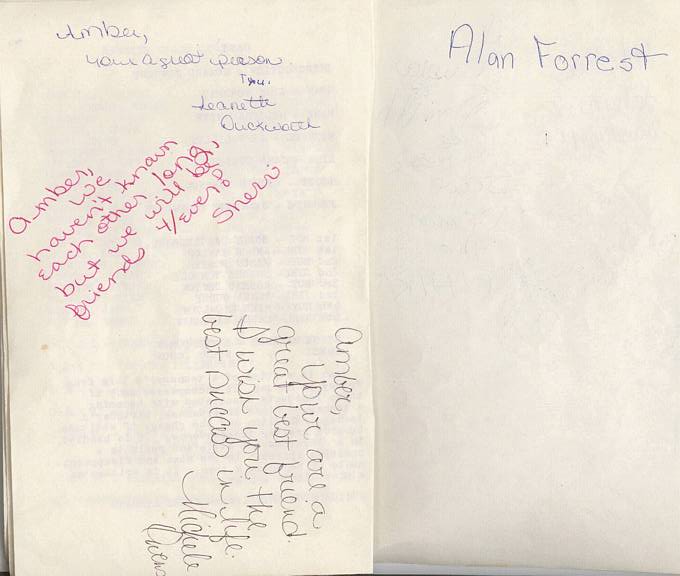 Amber,
your a great person.
Jeanette
Duckworth
Amber,
We
haven't known
each other long,
but we will be
friends 4/ever!
Sherri
Amber,
Your are a
great best friend.
I wish you the
best success in life.
Michele
Alan Forrest